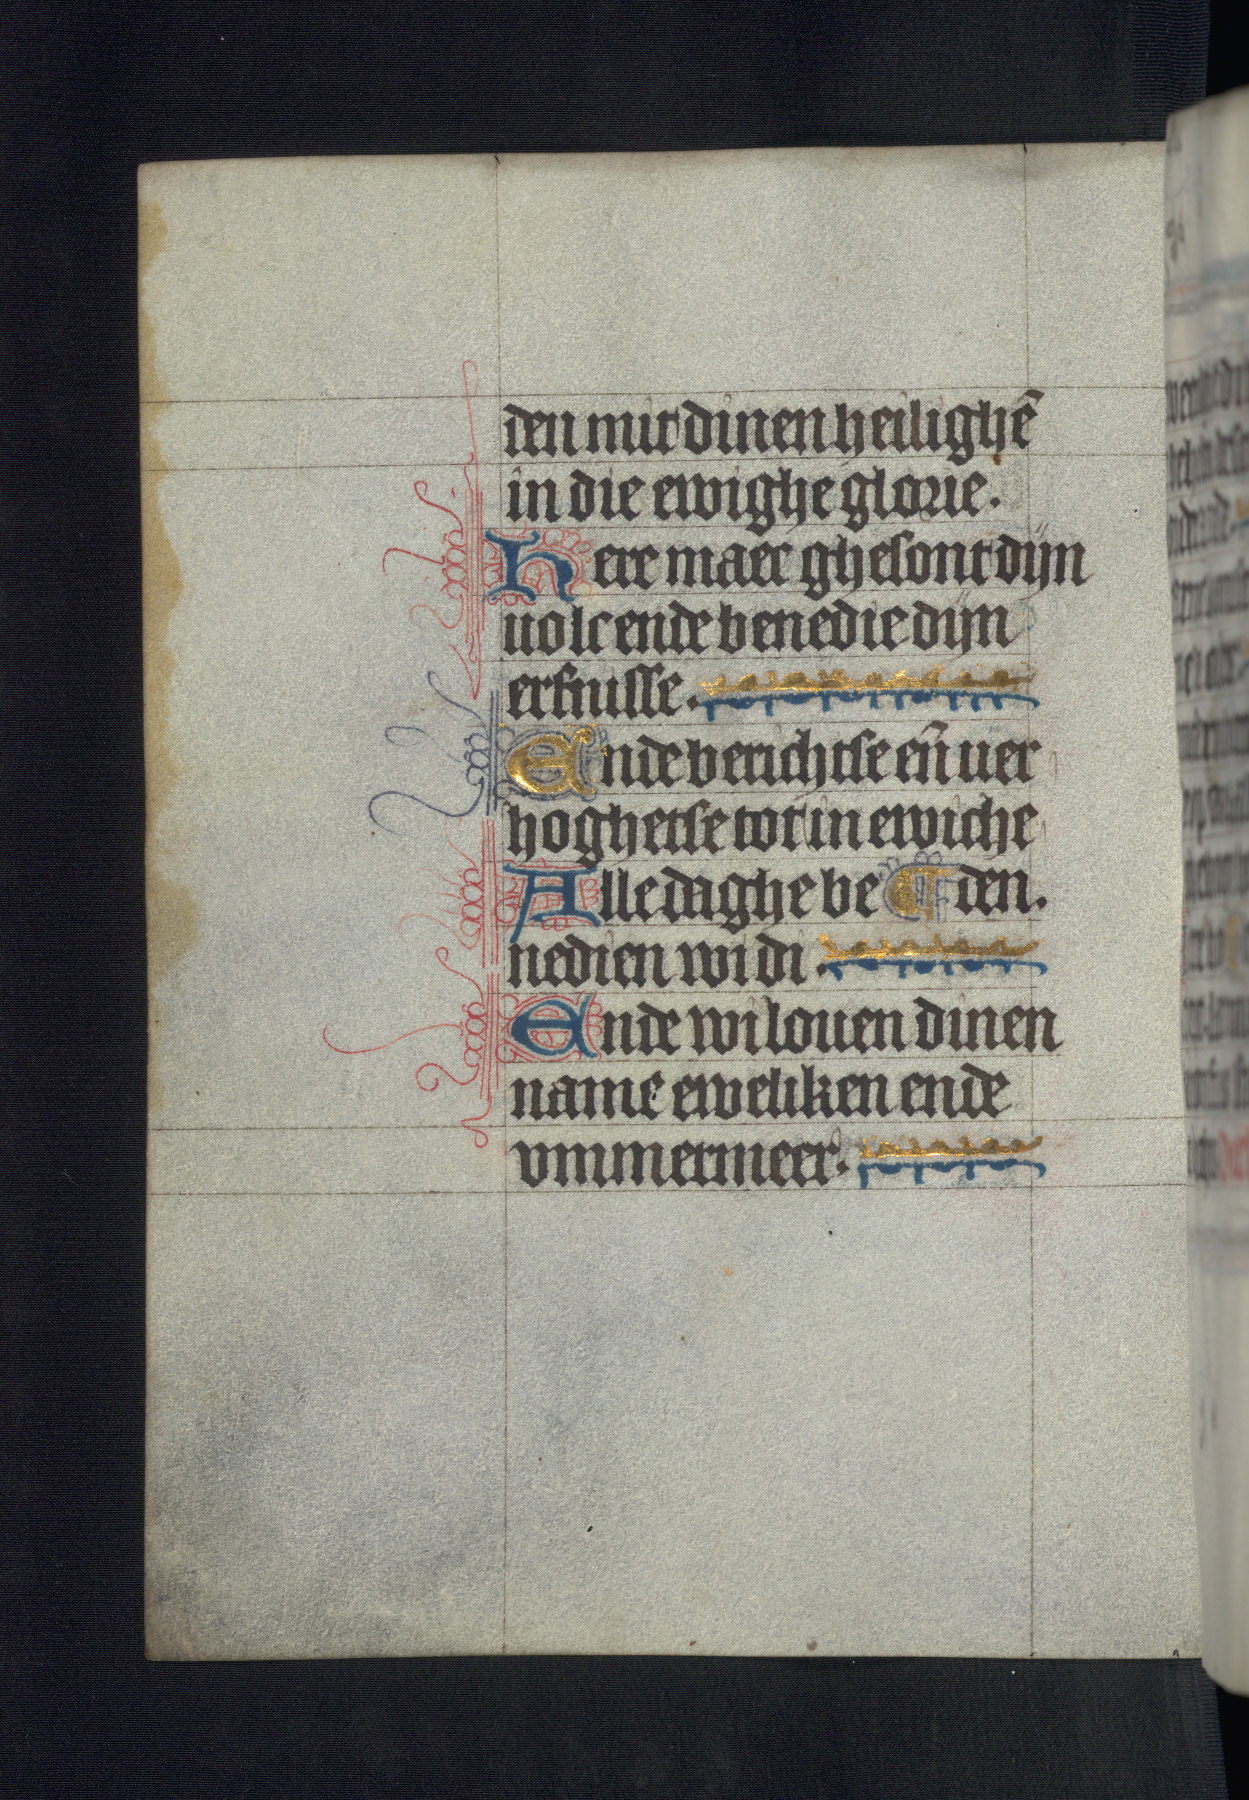 den mit dinen heilighē
in die ewighe glorie.
Here maec ghesont dijn
volc ende benedie dijn
erfnisse.
Ende berichtse eñ ver
hoghetse tot in ewiche
Alle daghe be¶den.
nedien wi di.
Ende wi louen dinen
name eweliken ende
vmmermeer.